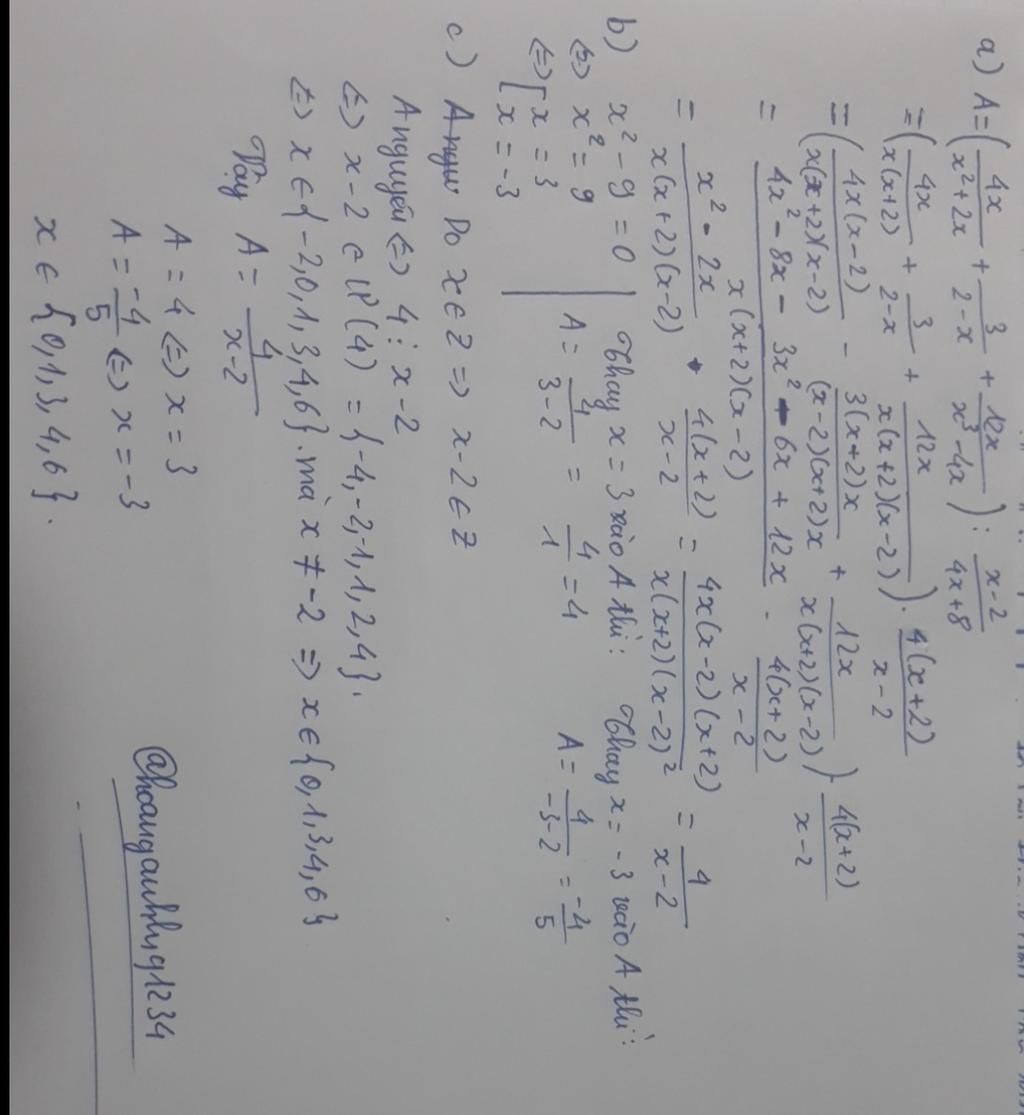 a) A = ( 4x/(x²+2x) + 3/(2-x) + 12x/(x³-4x) ) : (x-2)/(4x+8)
= ( 4x/(x(x+2)) + 3/(2-x) + 12x/(x(x+2)(x-2)) ) . 4(x+2)/(x-2)
= ( 4x(x-2)/(x(x+2)(x-2)) - 3(x+2)x/((x-2)(x+2)x) + 12x/(x(x+2)(x-2)) ) . 4(x+2)/(x-2)
= (4x²-8x-3x²-6x+12x)/(x(x+2)(x-2)) . 4(x+2)/(x-2)
= (x²-2x)/(x(x+2)(x-2)) . 4(x+2)/(x-2) = 4x(x-2)(x+2)/(x(x+2)(x-2)²) = 4/(x-2)
b) x²-9=0
⇔ x²=9
⇔ [ x=3
[ x=-3
Thay x=3 vào A thì:
A = 4/(3-2) = 4/1 = 4
Thay x=-3 vào A thì:
A = 4/(-3-2) = -4/5
c) Do x∈Z ⇒ x-2∈Z
A nguyên ⇔ 4 ⋮ x-2
⇔ x-2 ∈ Ư(4) = {-4,-2,-1,1,2,4}.
⇔ x∈{-2,0,1,3,4,6}. mà x≠-2 ⇒ x∈{0,1,3,4,6}
Vậy A = 4/(x-2)
A = 4 ⇔ x=3
A = -4/5 ⇔ x=-3
x ∈ {0,1,3,4,6}.